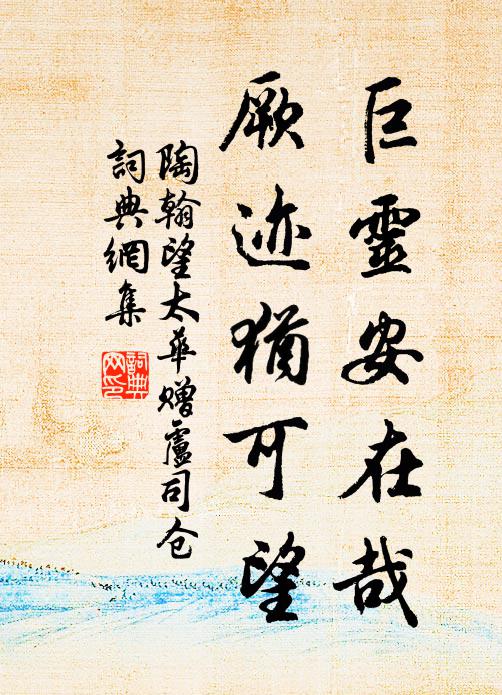 巨靈安在哉
厥迹猶可望
陶翰望太華贈盧司仓
詞典網集
詞典网印